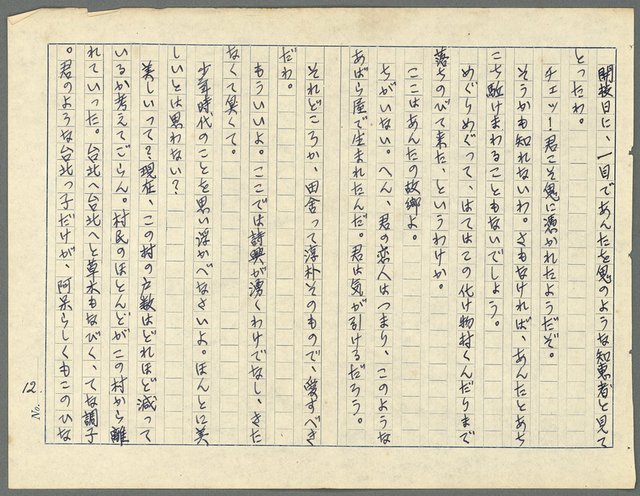 開校日に、一目であんたを鬼のような知恵者と見て
とったわ。
チェッ！君こそ鬼に憑かれたようだぞ。
そうかも知れないわ。さもなければ、あんたとあち
こち駈けまわることもないでしょう。
めぐりめぐって、はてはこの化け物村くんだりまで
落ちのびて来た、というわけか。
ここはあんたの故郷よ。
ちがいない。へん、君の恋人はつまり、このような
あばら屋で生まれたんだ。君は気が引けるだろう。
それどころか、田舎って淳朴そのもので、愛すべき
だわ。
もういいよ。ここでは詩興が湧くわけでなし、きた
なくて臭くて。
少年時代のことを思い浮かべなさいよ。ほんとに美
しいとは思わない？
美しいって？現在、この村の戸数はどれほど減って
いるか考えてごらん。村民のほとんどがこの村から離
れていった。台北へ台北へと草木もなびく、てな調子
。君のような台北っ子だけが、阿呆らしくもこのひな
No. 12